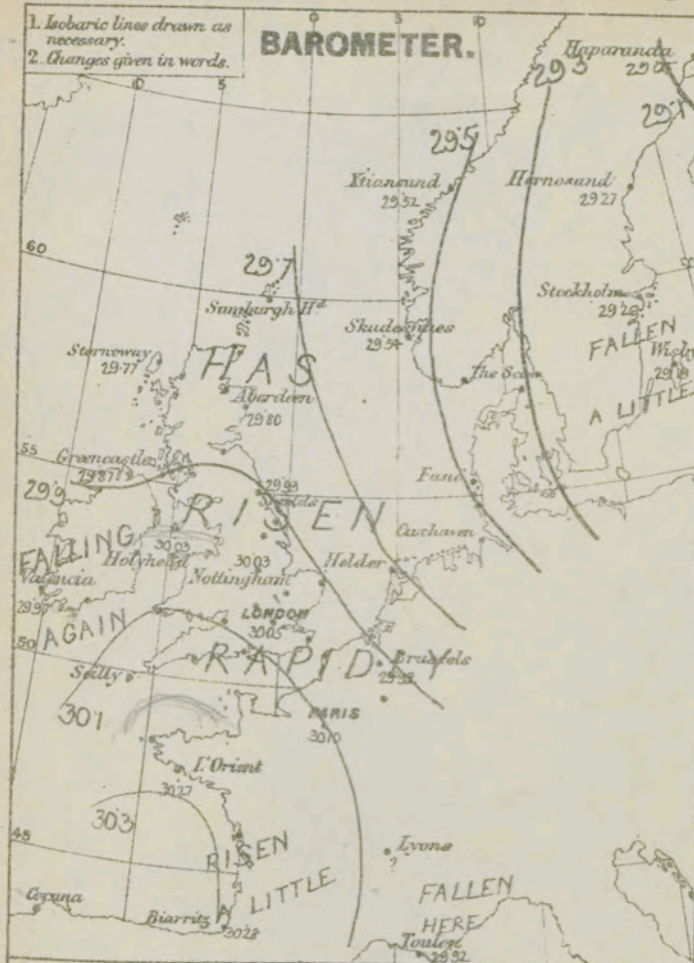 1. Isobaric lines drawn as
necessary.
2. Changes given in words.
BAROMETER.
10
5
0
5
10
Haparanda
29.5
29.3
29.1
Xtiansund
29.52
Hernosand
29.27
60
29.7
Sumburgh Hd
Stockholm
Skudesnaes
29.54
FALLEN
Wisby
Stornoway
29.77
HAS
The Scaw
A LITTLE
Aberdeen
29.80
55
Greencastle
29.87
29.9
29.93
Shields
Fano
RISEN
Cuxhaven
FALLING
Holyhead
30.03
30.03
Nottingham
Helder
Valencia
29.97
LONDON
30.05
AGAIN
50
RAPIDLY
Brussels
Scilly
30.1
PARIS
30.10
L'Orient
30.27
30.3
45
RISEN
Lyons
A LITTLE
FALLEN
HERE
Coruna
Biarritz
30.28
Toulon
29.92